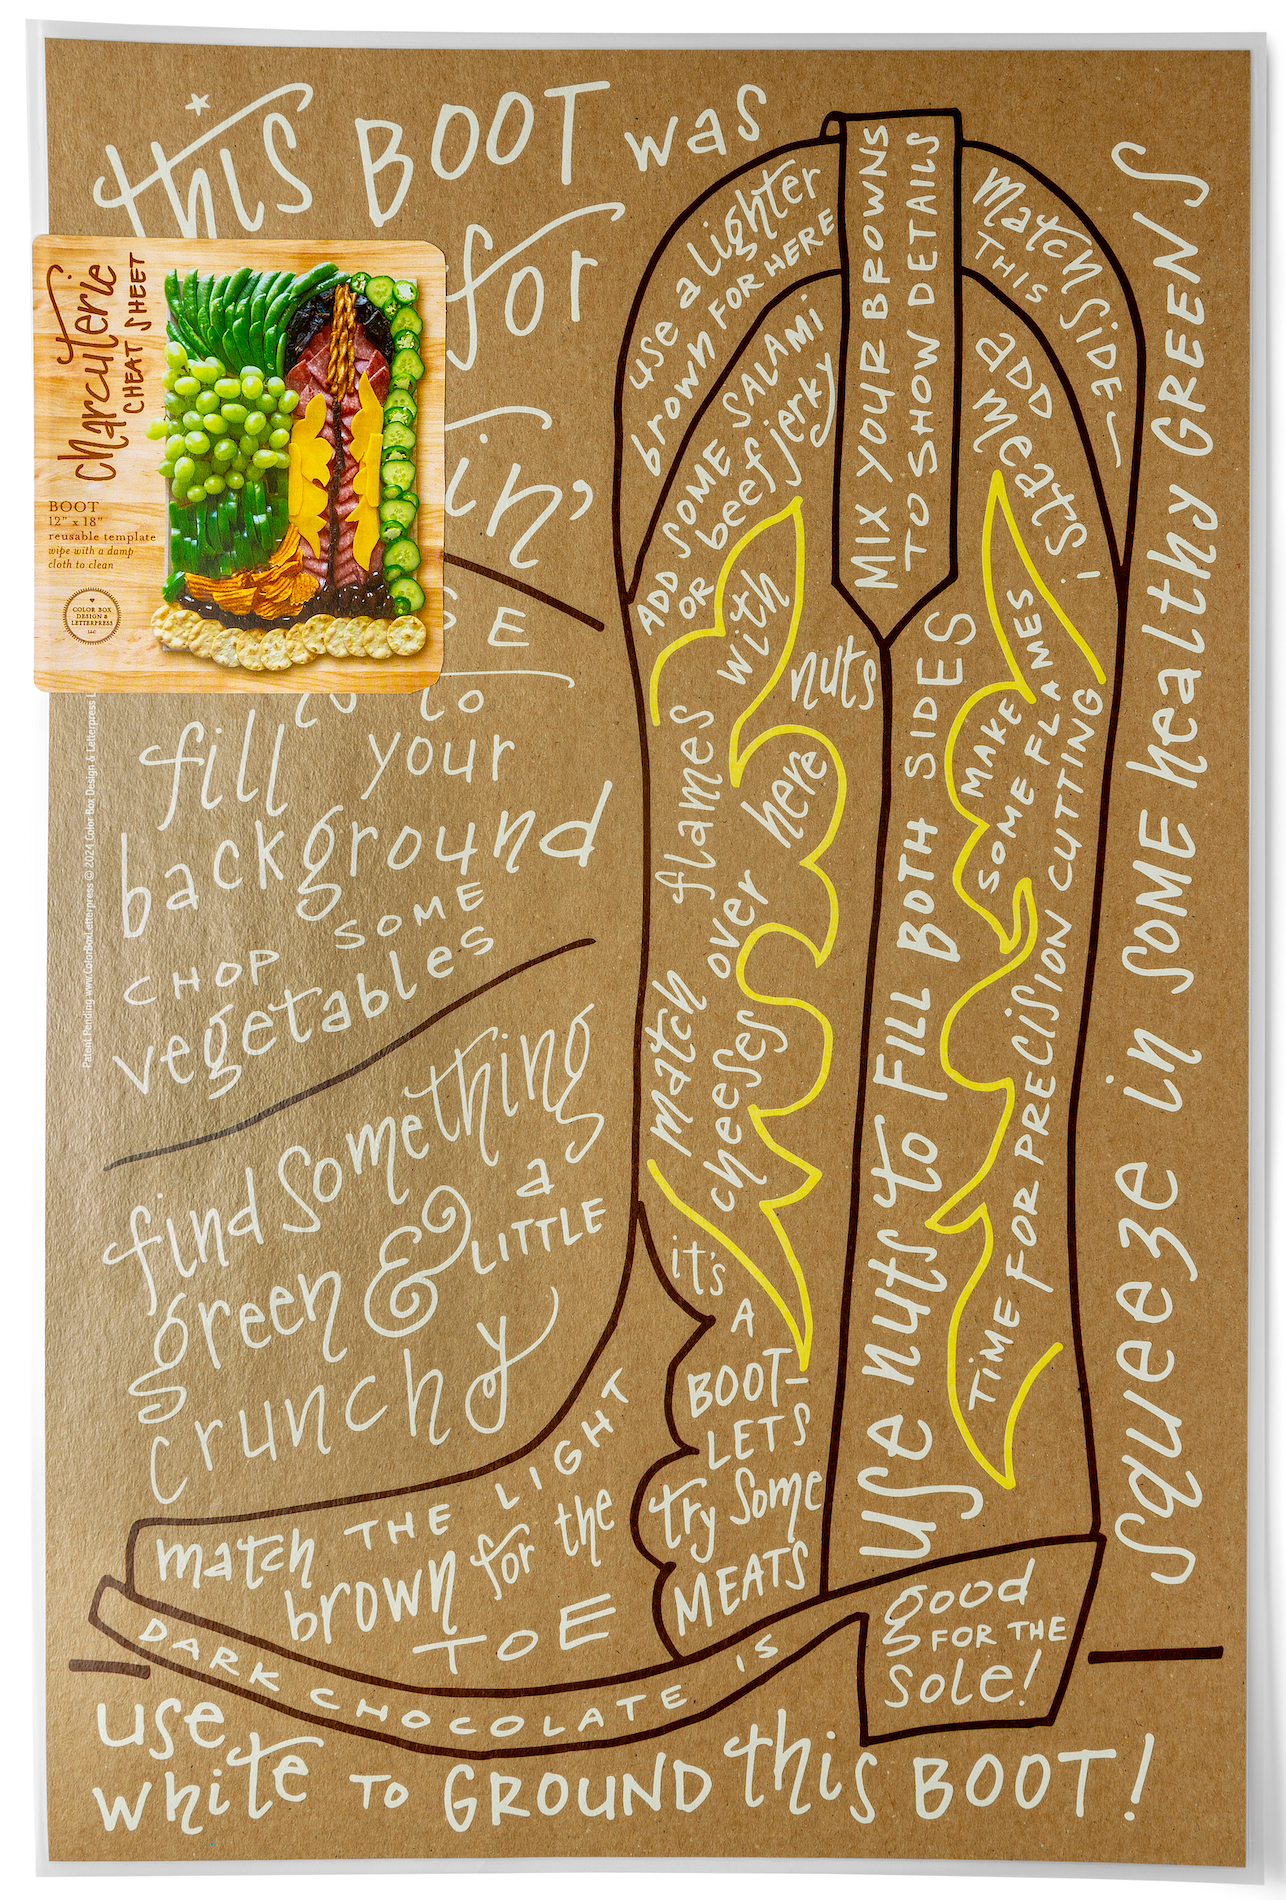 this BOOT was
for
in'
E
to
fill your
background
CHOP SOME
vegetables
find something
green & a LITTLE
crunchy
charcuterie
CHEAT SHEET
BOOT
12" x 18"
reusable template
wipe with a damp
cloth to clean
COLOR BOX
DESIGN &
LETTERPRESS
LLC
Patent Pending www.ColorBoxLetterpress © 2024 Color Box Design & Letterpress L
use a lighter
brown FOR HERE
ADD SOME SALAMI
OR beef jerky
MIX YOUR BROWNS
TO SHOW DETAILS
match SIDE
THIS
ADD
meats!
match flames with
cheeses over here
nuts
use nuts to FILL BOTH SIDES
MAKE
SOME FLAMES
TIME FOR PRECISION CUTTING
squeeze in SOME healthy GREENS
it's
A
BOOT-
LETS
try some
MEATS
match THE LIGHT
brown for the
TOE
DARK CHOCOLATE IS
good
FOR THE
sole!
use
white TO GROUND this BOOT!